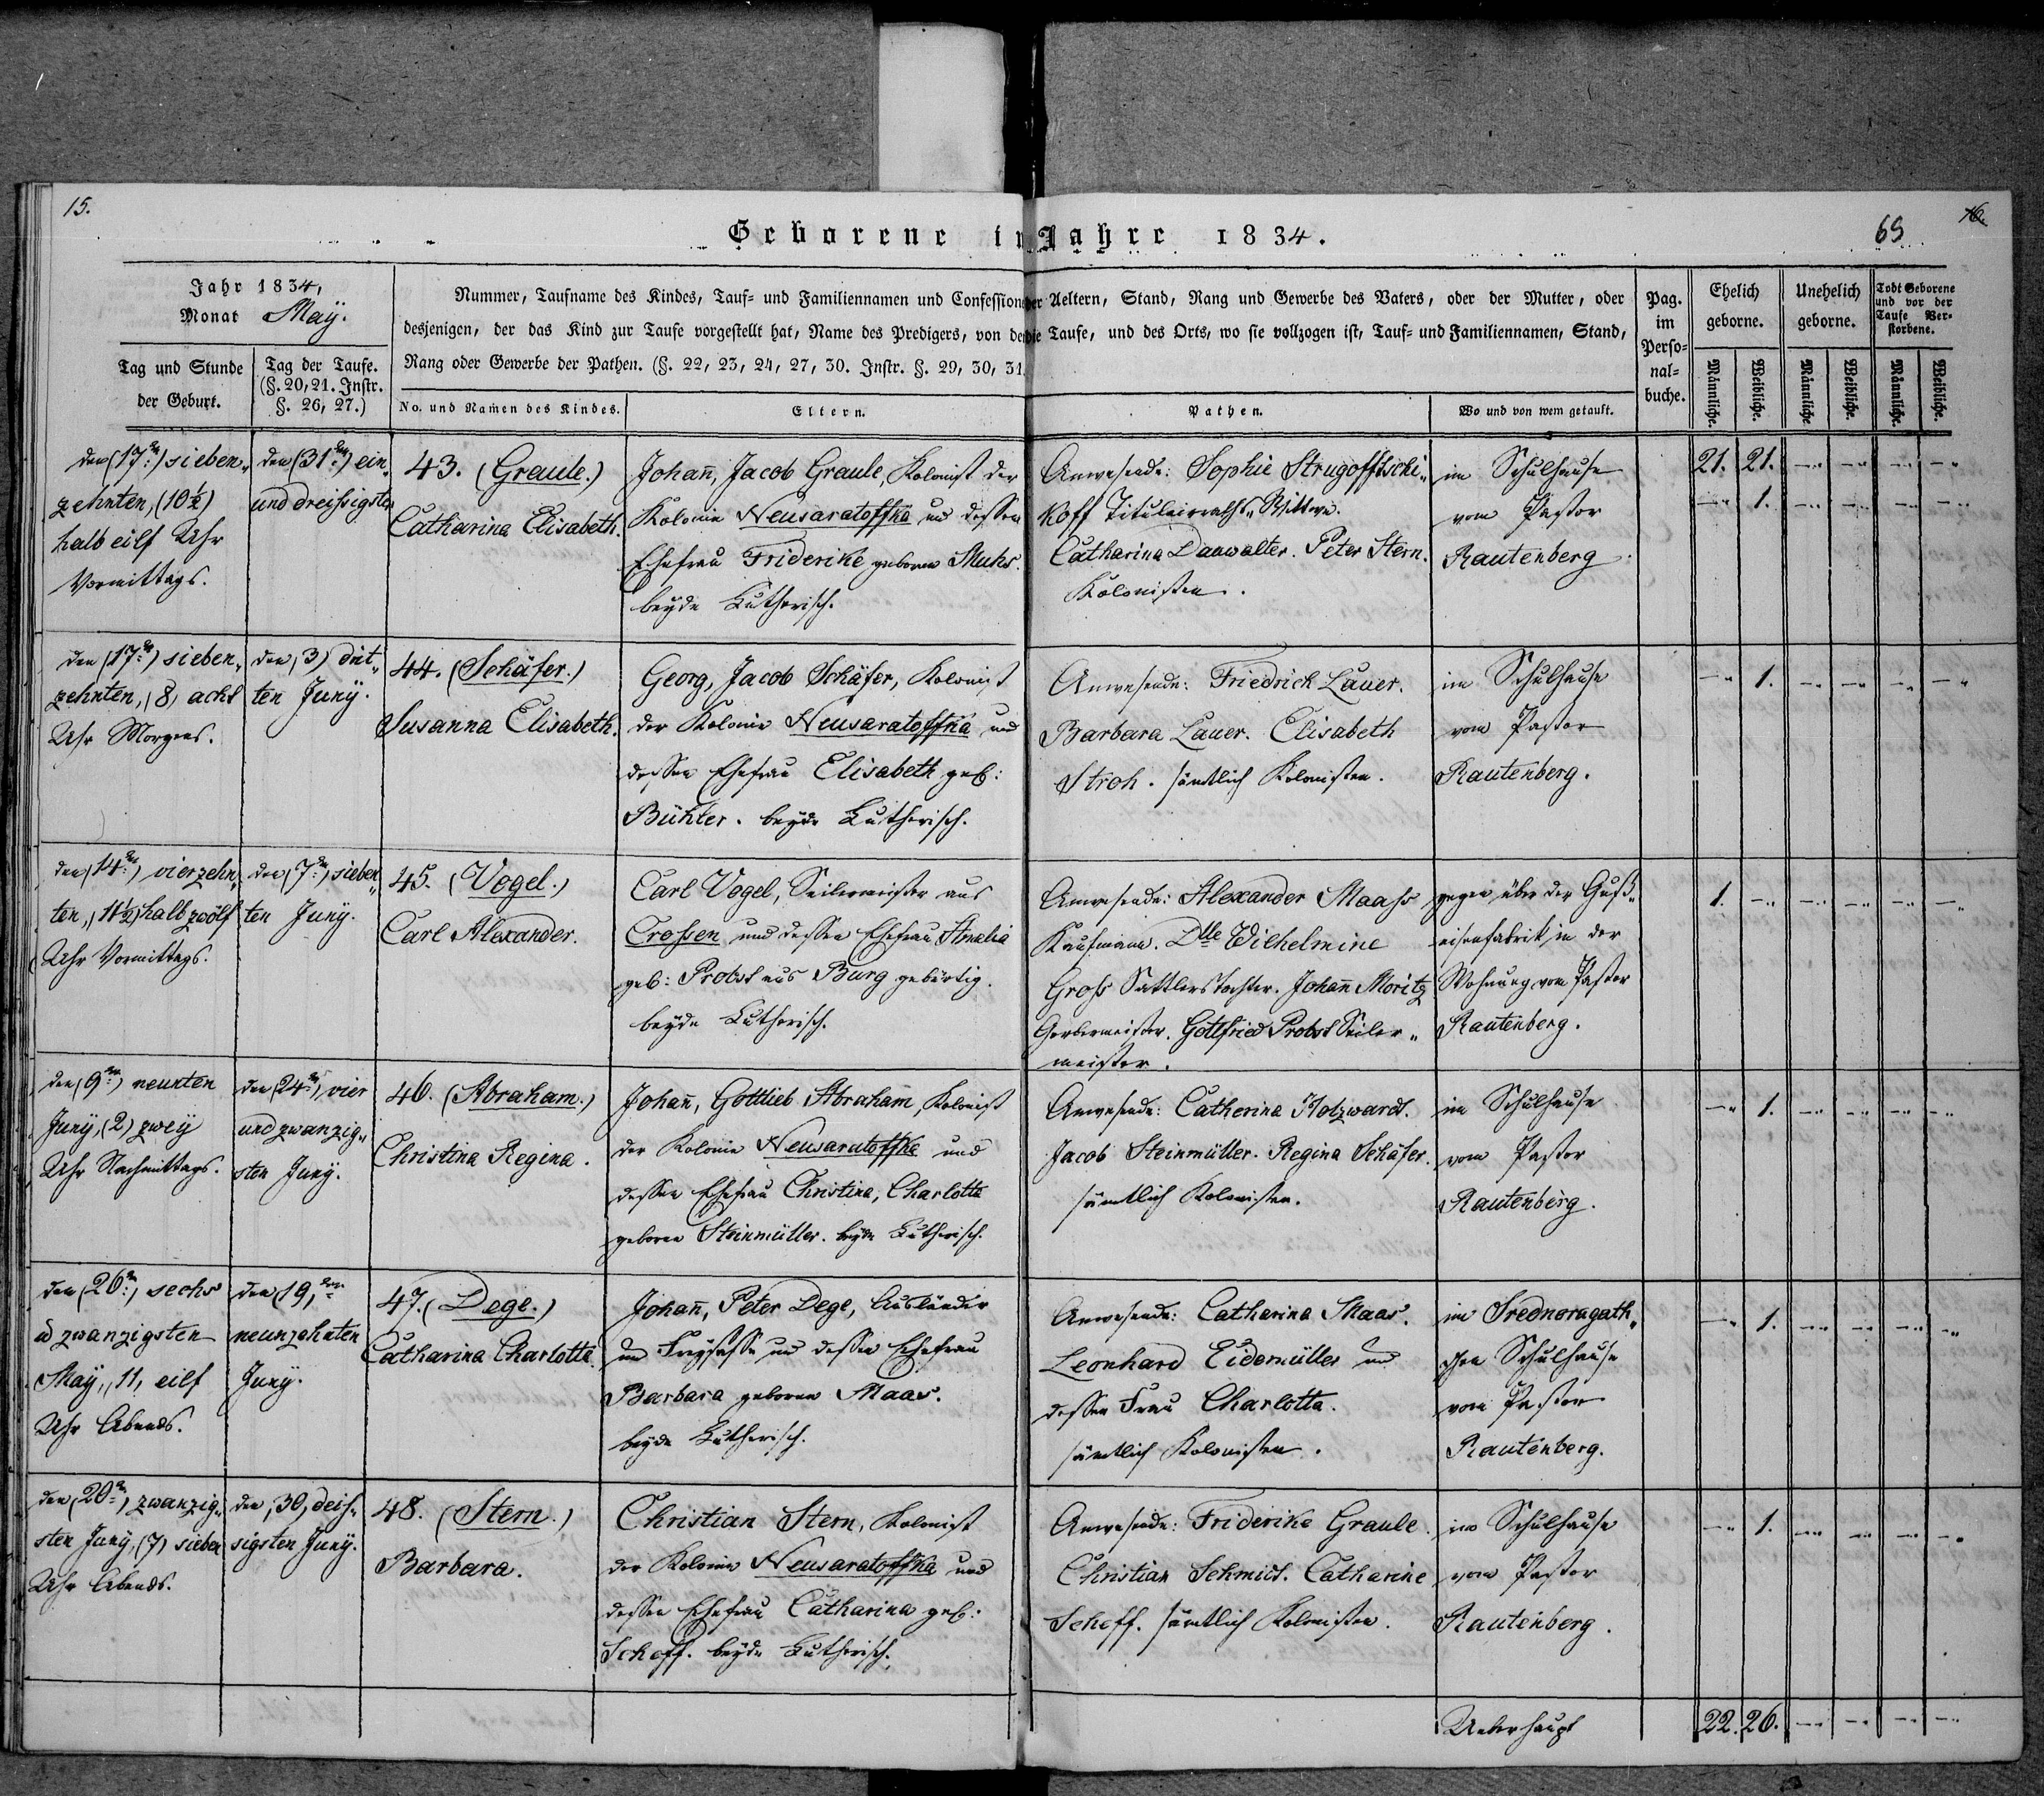 15.
16.
69
Geborene im Jahre 1834.
Jahr 1834,
Monat May.
Tag und Stunde
der Geburt.
Tag der Taufe.
(§. 20, 21. Instr.
§. 26, 27.)
Nummer, Taufname des Kindes, Tauf- und Familiennamen und Confession der Aeltern, Stand, Rang und Gewerbe des Vaters, oder der Mutter, oder
desjenigen, der das Kind zur Taufe vorgestellt hat, Name des Predigers, von dem die Taufe, und des Orts, wo sie vollzogen ist, Tauf- und Familiennamen, Stand,
Rang oder Gewerbe der Pathen. (§. 22, 23, 24, 27, 30. Instr. §. 29, 30, 31.
No. und Namen des Kindes.
Eltern.
Pathen.
Wo und von wem getauft.
Pag.
im
Perso-
nal-
buche.
Ehelich
geborne.
Unehelich
geborne.
Todt Geborene
und vor der
Taufe Ver-
storbene.
Männliche.
Weibliche.
Männliche
Weibliche.
Männliche.
Weibliche.
den (17ten) sieben„
zehnten, (10½)
halb eilf Uhr
Vormittags.
den (31ten) ein„
und dreissigsten
43. (Graule.)
Catharina Elisabeth.
Johañ, Jacob Graule, Kolonist der
Kolonie Neusaratoffka und dessen
Ehefrau Friderike geborne Muhs.
beyde Lutherisch.
Anwesende: Sophie Strugofftschi„
koff Titulairraths„Wittwe.
Catharina Dauwalter. Peter Stern.
Kolonisten.
im Schulhause
vom Pastor
Rautenberg.
21. 21. — — — —
— 1. — — — —
den (17ten) sieben„
zehnten, (8) acht
Uhr Morgens.
den (3) drit„
ten Juny.
44. (Schäfer.)
Susanna Elisabeth.
Georg, Jacob Schäfer, Kolonist
der Kolonie Neusaratoffka und
dessen Ehefrau Elisabeth geb:
Bühler. beyde Lutherisch.
Anwesende: Friedrich Lauer.
Barbara Lauer. Elisabeth
Stroh. sämtlich Kolonisten.
im Schulhause
vom Pastor
Rautenberg.
— 1. — — — —
den (14ten) vierzehn„
ten, (11½) halb zwölf
Uhr Vormittags.
den (7ten) sieben„
ten Juny.
45. (Vogel.)
Carl Alexander.
Carl Vogel, Seilermeister aus
Crossen und dessen Ehefrau Amalia
geb: Probst aus Burg gebürtig.
beyde Lutherisch.
Anwesende: Alexander Maass
Kaufmann. Dlle Wilhelmine
Gross Sattlerstochter. Johañ Moritz
Gerbermeister. Gottfried Probst Seiler„
meister.
gegen über der Guß„
eisenfabrik in der
Wohnung vom Pastor
Rautenberg.
1. — — — — —
den (9ten) neunten
Juny, (2) zwey
Uhr Nachmittags.
den (24ten) vier
und zwanzig„
sten Juny.
46. (Abraham.)
Christina Regina.
Johañ, Gottlieb Abraham, Kolonist
der Kolonie Neusaratoffka und
dessen Ehefrau Christina, Charlotta
geborne Steinmüller. beyde Lutherisch.
Anwesende: Catherina Holzwardt.
Jacob Steinmüller. Regina Schäfer.
sämtlich Kolonisten.
im Schulhause
vom Pastor
Rautenberg.
— 1. — — — —
den (26ten) sechs
u zwanzigsten
May, (11) eilf
Uhr Abends.
den (19)ten
neunzehnten
Juny.
47. (Dege.)
Catharina Charlotta.
Johañ, Peter Dege, Ausländer
und Freysasse und dessen Ehefrau
Barbara geborne Maas.
beyde Lutherisch.
Anwesende: Catharina Maas.
Leonhard Eidemüller und
dessen Frau Charlotta.
sämtlich Kolonisten.
im Srednoragath„
schen Schulhause
vom Pastor
Rautenberg.
— 1. — — — —
den (20ten) zwanzig„
sten Juny, (7) sieben
Uhr Abends.
den (30) dreis„
sigsten Juny.
48. (Stern.)
Barbara.
Christian Stern, Kolonist
der Kolonie Neusaratoffka und
dessen Ehefrau Catharina geb:
Scheff. beyde Lutherisch.
Anwesende: Friderike Graule.
Christian Schmidt. Catharine
Scheff. sämtlich Kolonisten.
im Schulhause
vom Pastor
Rautenberg.
— 1. — — — —
Ueberhaupt
22. 26. — — — —